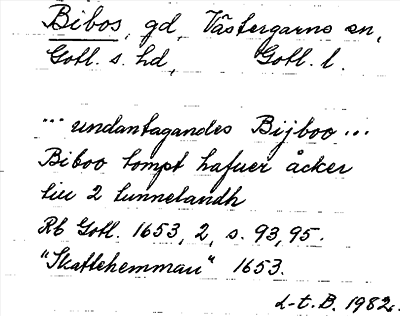 Bibos, gd, Västergarns sn,
Gotl. s. hd, Gotl. l.
... undantagandes Bijboo ...
Biboo tompt hafuer åcker
till 2 tunnelandh
Rb Gotl. 1653, 2, s. 93, 95.
"Skattehemman" 1653.
L-t. B. 1982.